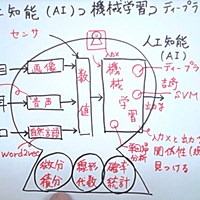 工知能(AI)⊃機械学習⊃ディープラ
センサ
人工知能
(AI)
入力
目
画像
数値
機械学習
ディープラ
音声
SVM
出力
耳
自然言語
word2vec
回帰分析
入力と出力
関係性
見つける
微分
積分
線形
代数
確率
統計